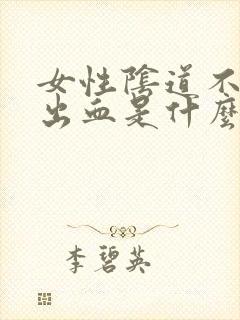 女性陰道不
出血是什麼
李碧英